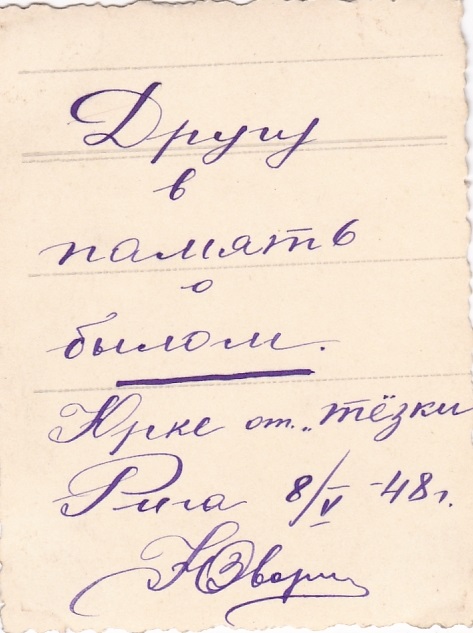 Другу
в
память
о
былом.
Юрке от „тёзки
Рига 8/V -48 г.